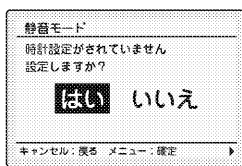 静音モード
時計設定がされていません
設定しますか?
はい いいえ
キャンセル:戻る メニュー:確定